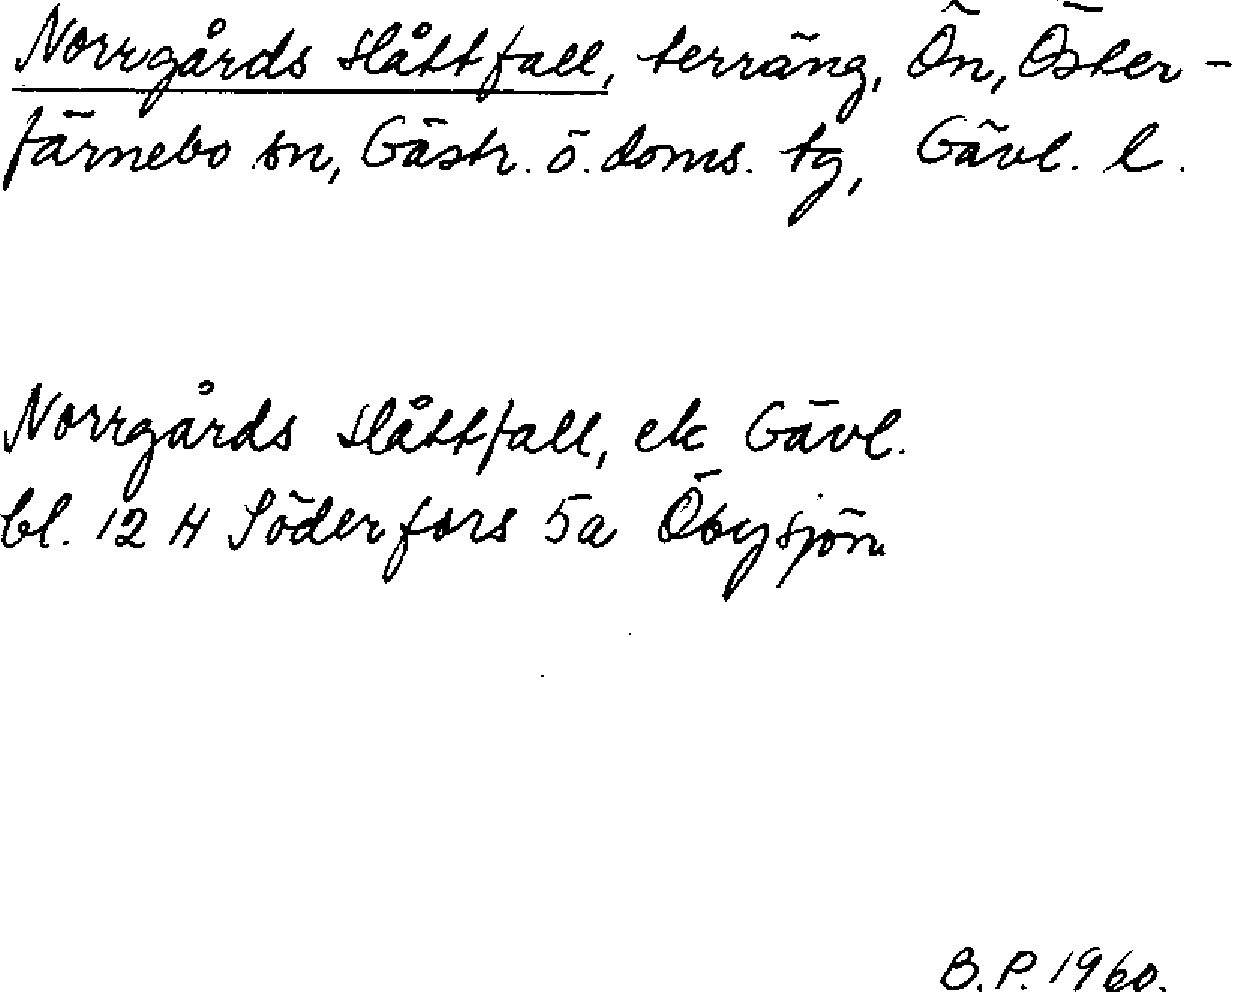 Norrgårds slåttfall, terräng, Ön, Öster-
färnebo sn, Gästr. ö. doms. tg, Gävl. l.
Norrgårds slåttfall, ek Gävl.
bl. 12 H Söderfors 5a Öbysjön
B.P. 1960.